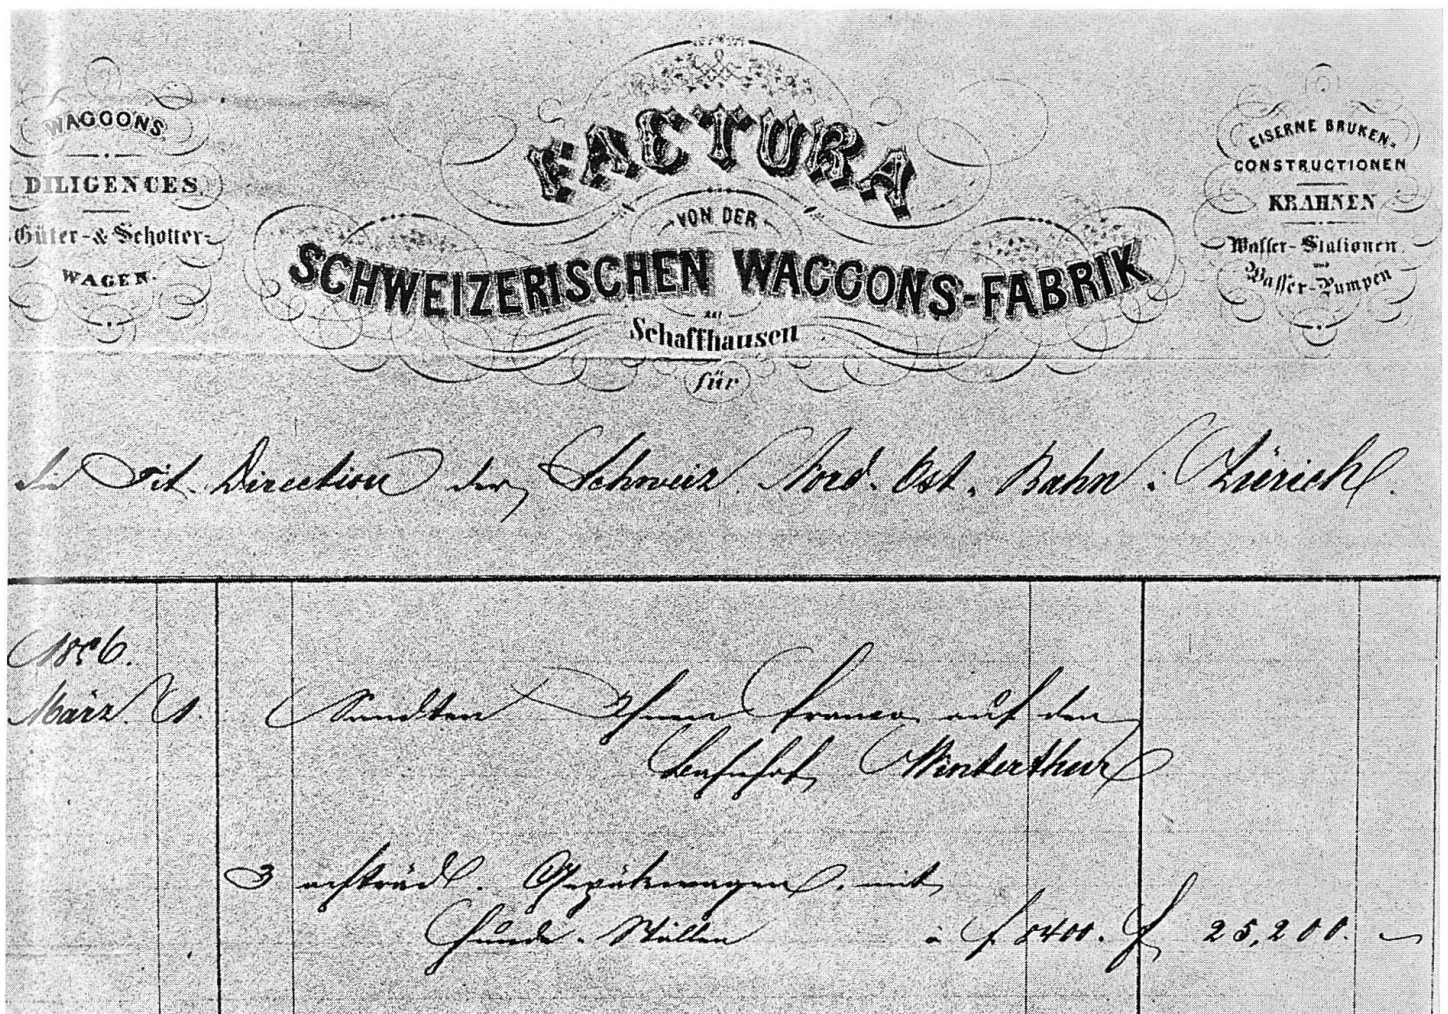 WAGGONS
DILIGENCES
Güter-& Schotter-
WAGEN.
FACTURA
VON DER
SCHWEIZERISCHEN WAGGONS-FABRIK
bei
Schaffhausen
für
EISERNE BRUKEN-
CONSTRUCTIONEN
KRAHNEN
Wasser-Stationen
und
Wasser-Pumpen
die Tit. Direction der Schweiz. Nord-Ost-Bahn: Zürich.
1856.
März 1. Sandten Ihnen franco auf den
Bahnhof Winterthur
3 achträdl. Gepäkwagen, mit
Hunde-Ställen à f 8400. f 25,200. –